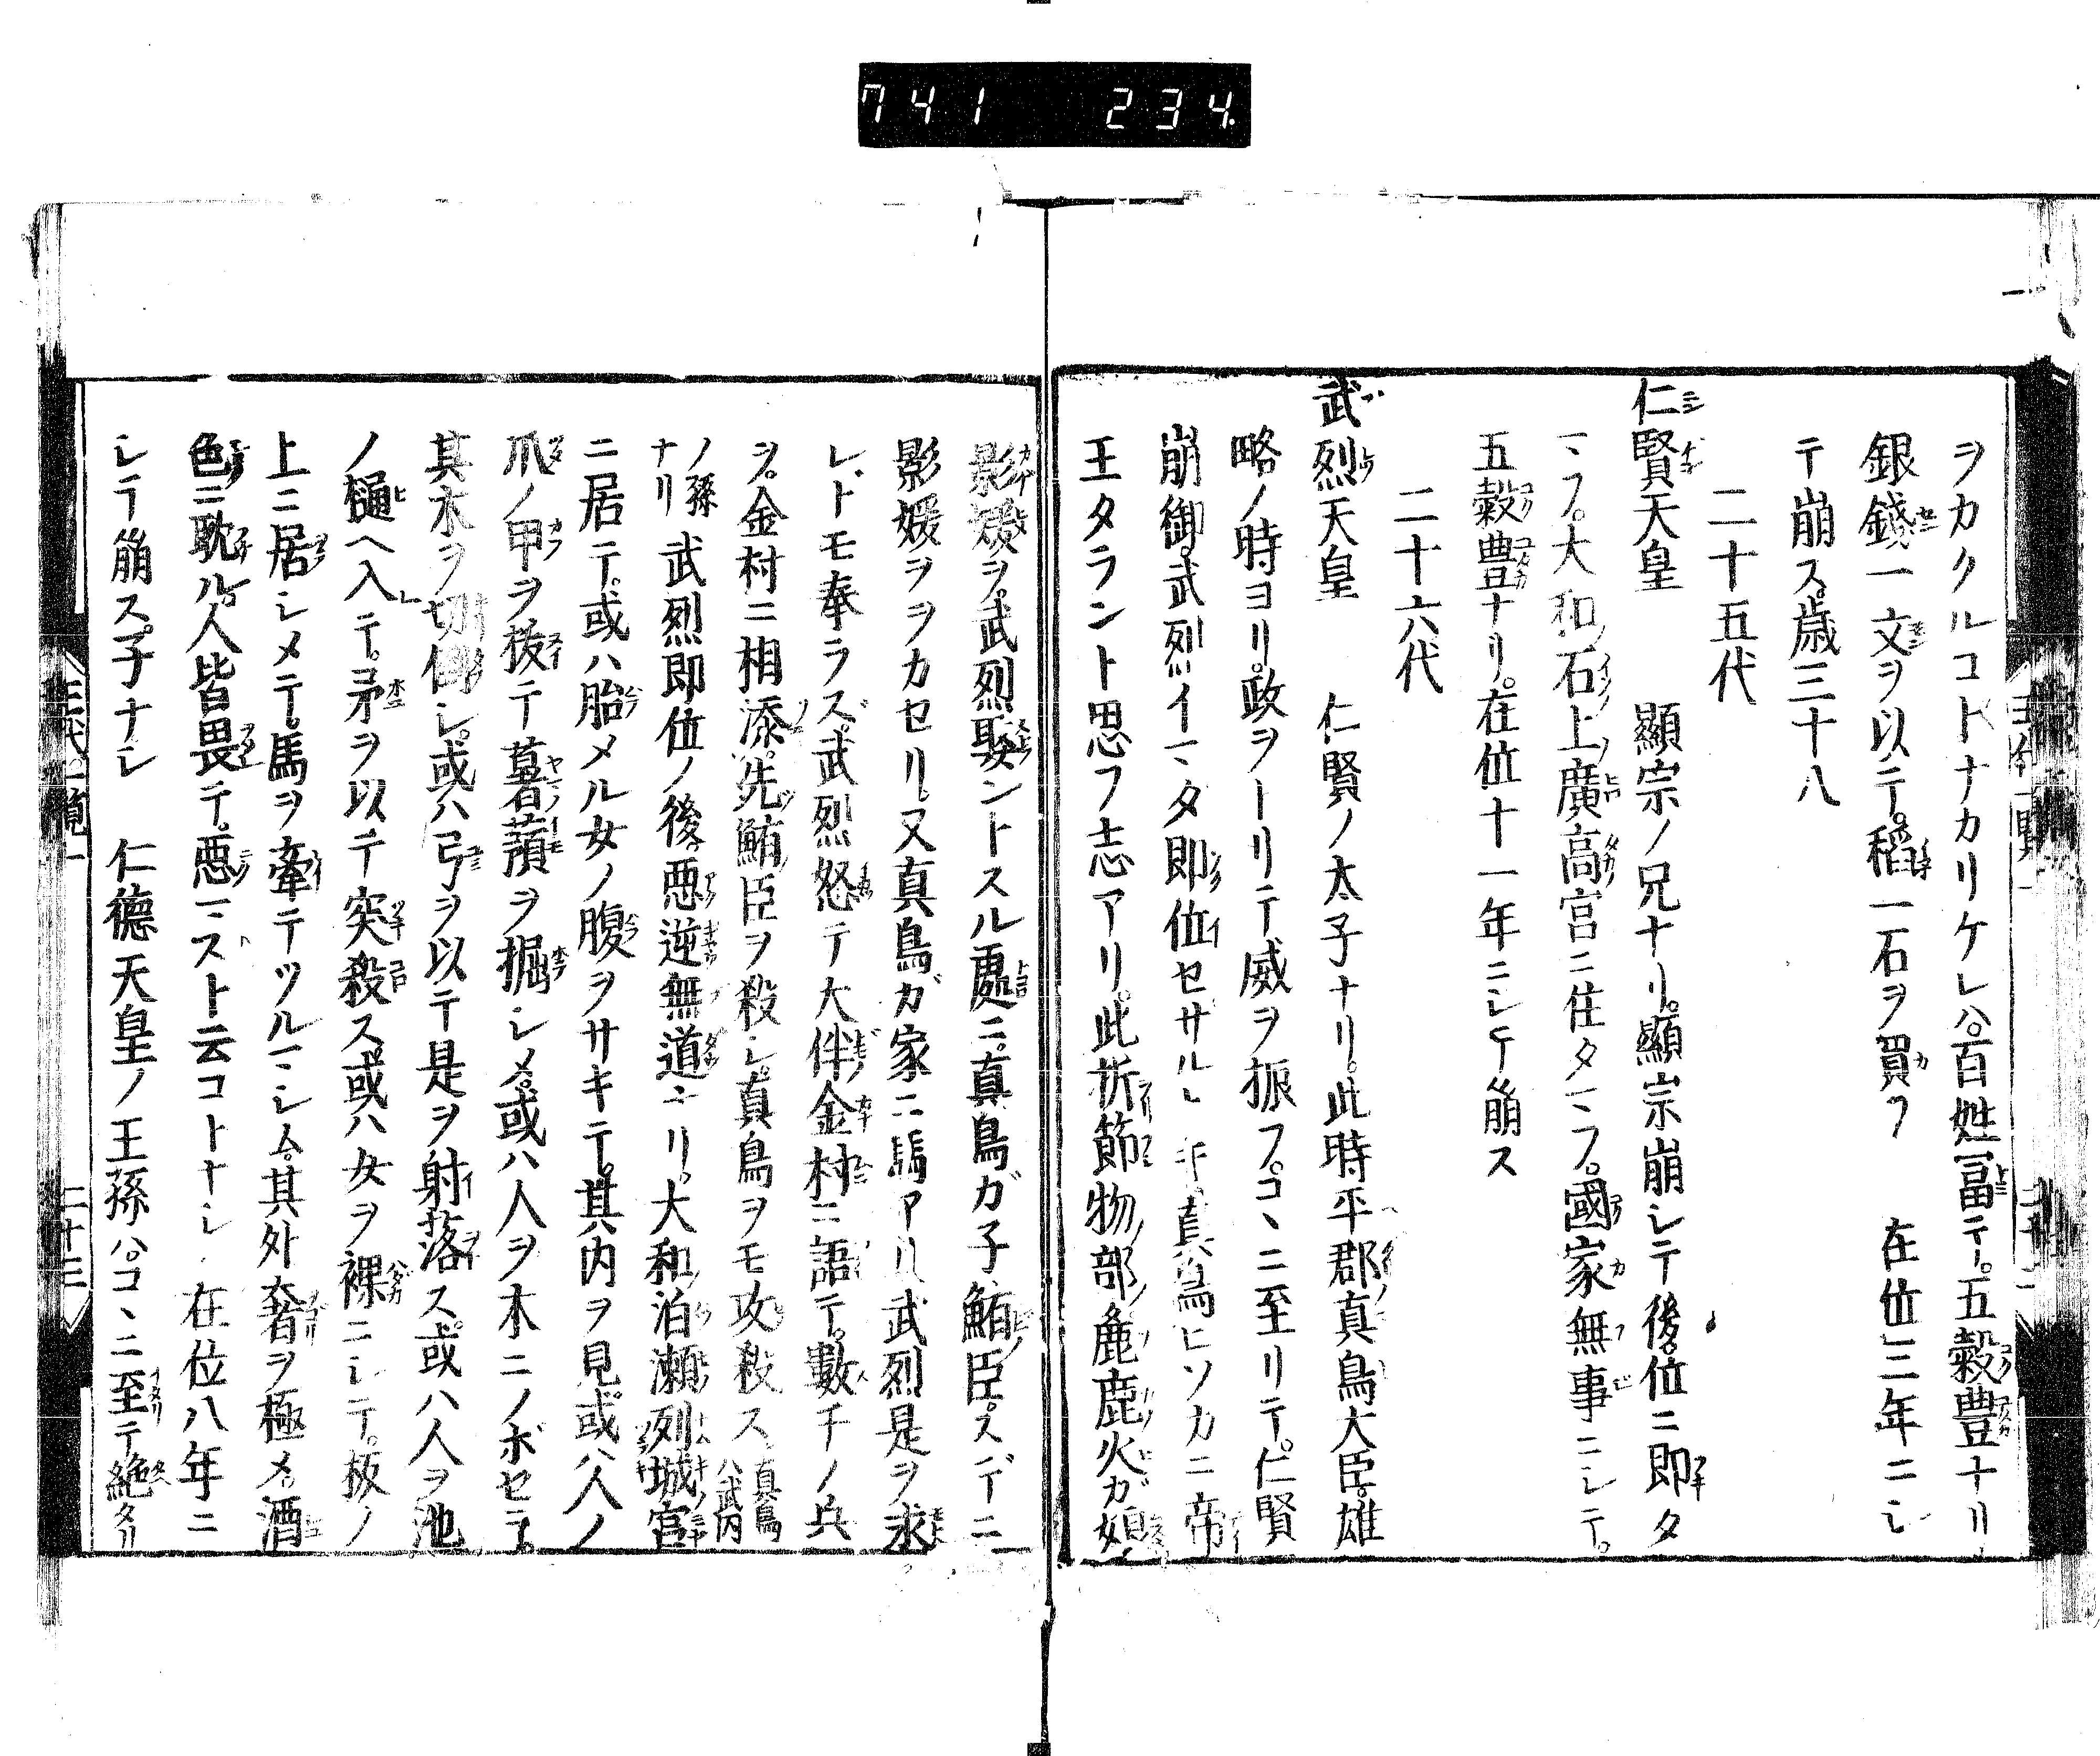 741 234.
ヲカクルコトナカリケレハ。百姓冨テ。五穀豊ナリ
銀錢一文ヲ以テ。稻一石ヲ買フ 在位三年ニシ
テ崩ス。歳三十八
二十五代
仁賢天皇 顯宗ノ兄ナリ。顯宗崩シテ後。位ニ即タ
マフ。大和ノ石上廣高宮ニ住タマフ。國家無事ニシテ。
五穀豊ナリ。在位十一年ニシテ崩ス
二十六代
武烈天皇 仁賢ノ太子ナリ。此時平郡真鳥大臣。雄
略ノ時ヨリ。政ヲトリテ威ヲ振フ。コヽニ至リテ。仁賢
崩御。武烈イマタ即位セサルトキ。真鳥ヒソカニ帝
王タラント思フ志アリ。此折節物部麁鹿火ガ娘
影媛ヲ。武烈娶ントスル處ニ。真鳥ガ子鮪臣。スデニ
影媛ヲヲカセリ。又真鳥ガ家ニ馬アリ。武烈是ヲ求
レトモ奉ラズ。武烈怒テ大伴金村ニ語テ。數千ノ兵
ヲ。金村ニ相添。先鮪臣ヲ殺シ。真鳥ヲモ攻殺ス 真鳥ハ武内
ノ孫ナリ 武烈即位ノ後。悪逆無道ナリ。大和泊瀬列城宮
ニ居テ。或ハ胎メル女ノ腹ヲサキテ。其内ヲ見。或ハ人ノ
爪ノ甲ヲ抜テ薯蕷ヲ掘シメ。或ハ人ヲ木ニノボセテ。
其木ヲ切倒シ。或ハ弓ヲ以テ是ヲ射落ス。或ハ人ヲ池
ノ樋ヘ入レテ。矛ヲ以テ突殺ス。或ハ女ヲ裸ニシテ。板ノ
上ニ居シメテ。馬ヲ牽テツルマシム。其外奢ヲ極メ。酒
色ニ耽ル。人皆畏テ。悪マスト云コトナシ 在位八年ニ
シテ崩ス。子ナシ 仁德天皇ノ王孫ハ。コヽニ至テ絶タリ
王代一覧一 二十三